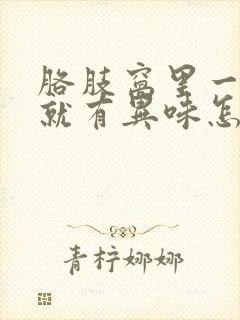 胳肢窝里一
就有异味怎
青柠娜娜